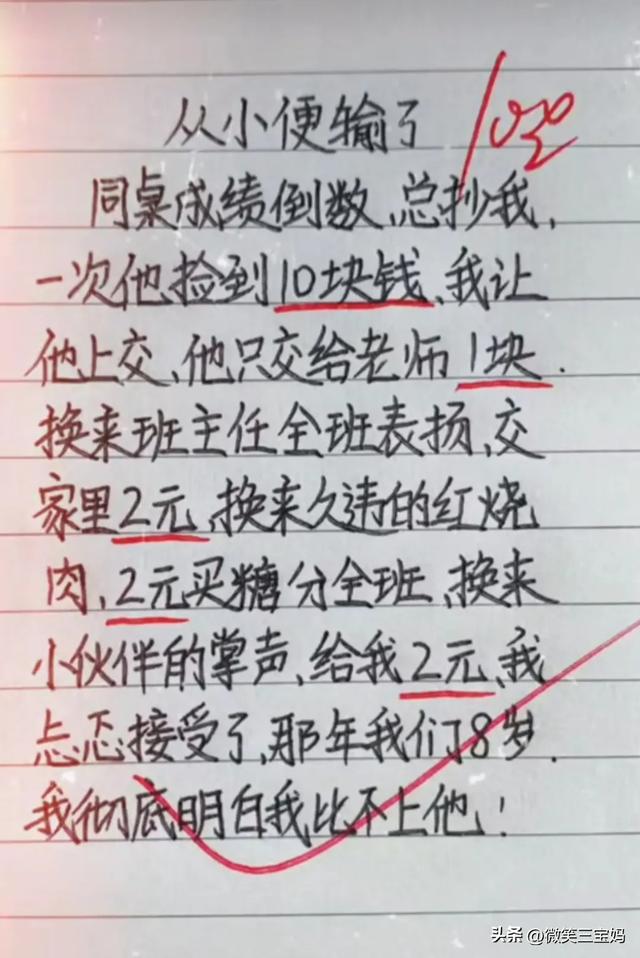 从小便输了 100
同桌成绩倒数、总抄我,
一次他捡到10块钱、我让
他上交、他只交给老师1块.
换来班主任全班表扬、交
家里2元、换来久违的红烧
肉、2元买糖分全班、换来
小伙伴的掌声、给我2元、我
忐忑接受了、那年我们8岁.
我彻底明白我比不上他!
头条@微笑三宝妈